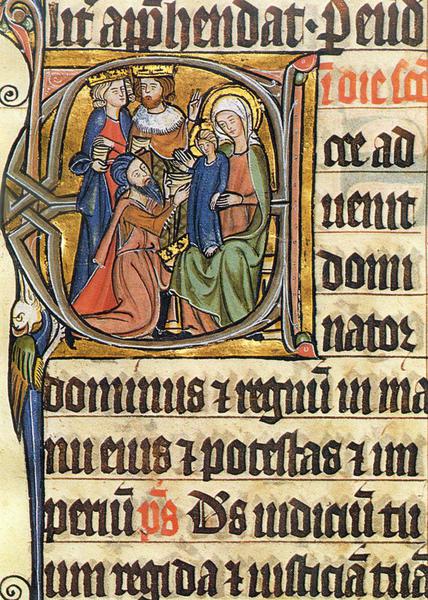 app̄hendat · 
in die sc̄o
Ecce ad
uenit
domi
nator
dominus ⁊ regnū in ma
nu eius ⁊ potestas ⁊ im
periū p̄s D̄s iudiciū tu
um regi da ⁊ iusticiā tuā